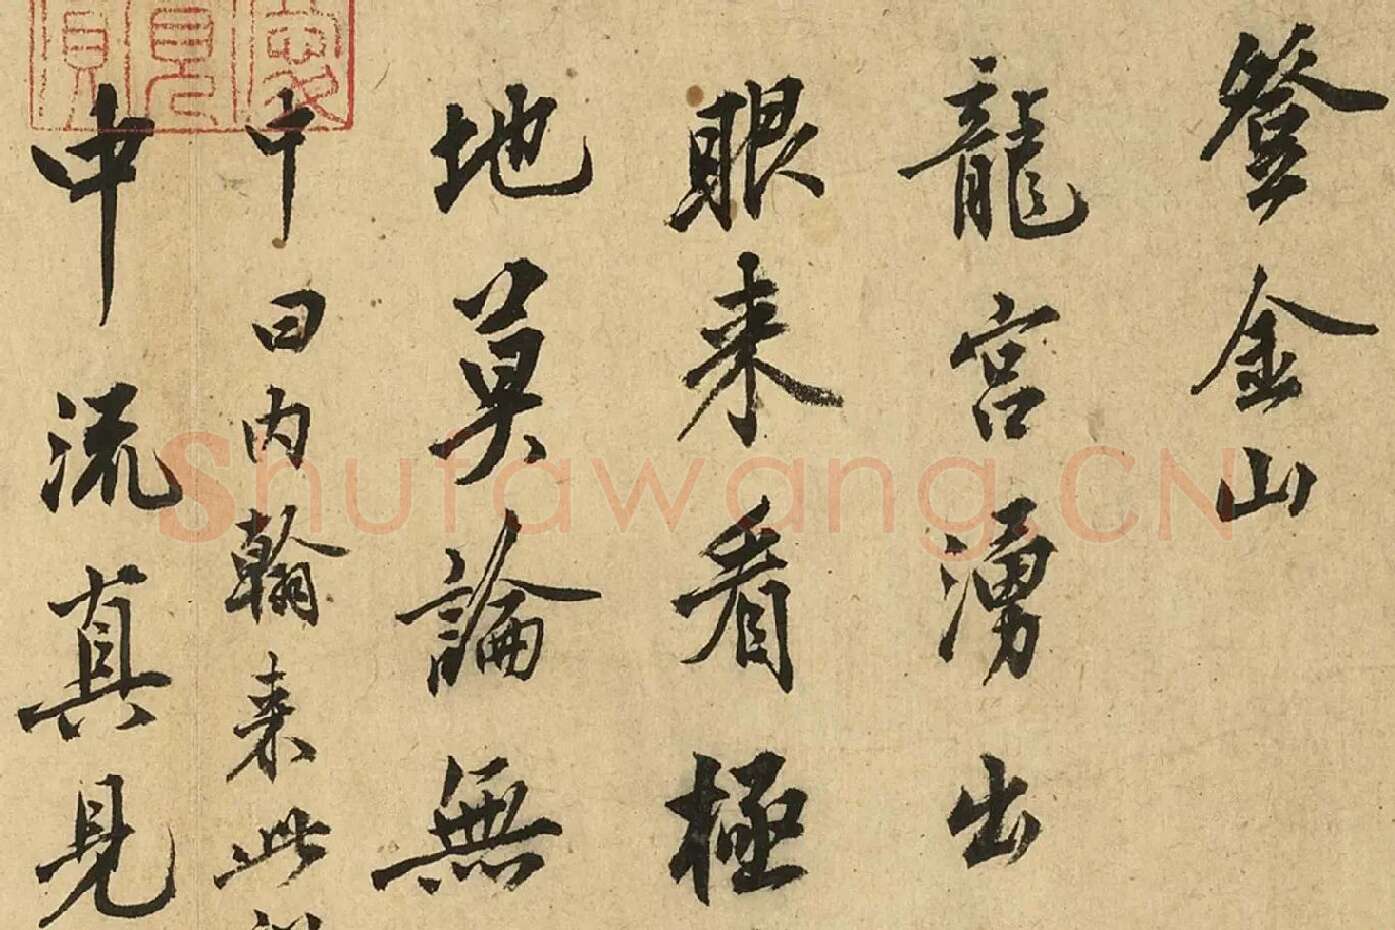 登金山
龍宮湧出
眼来看極
地莫論無
中日内翰来此
中流真見
Shufawang.CN